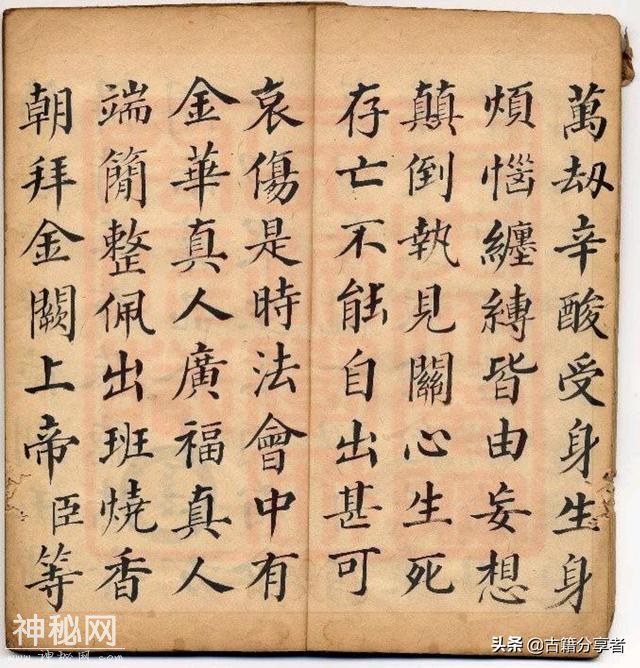 萬劫辛酸受身生身
煩惱纏縛皆由妄想
顛倒執見關心生死
存亡不能自出甚可
哀傷是時法會中有
金華真人廣福真人
端簡整佩出班燒香
朝拜金闕上帝臣等
神秘网
头条 @古籍分享者